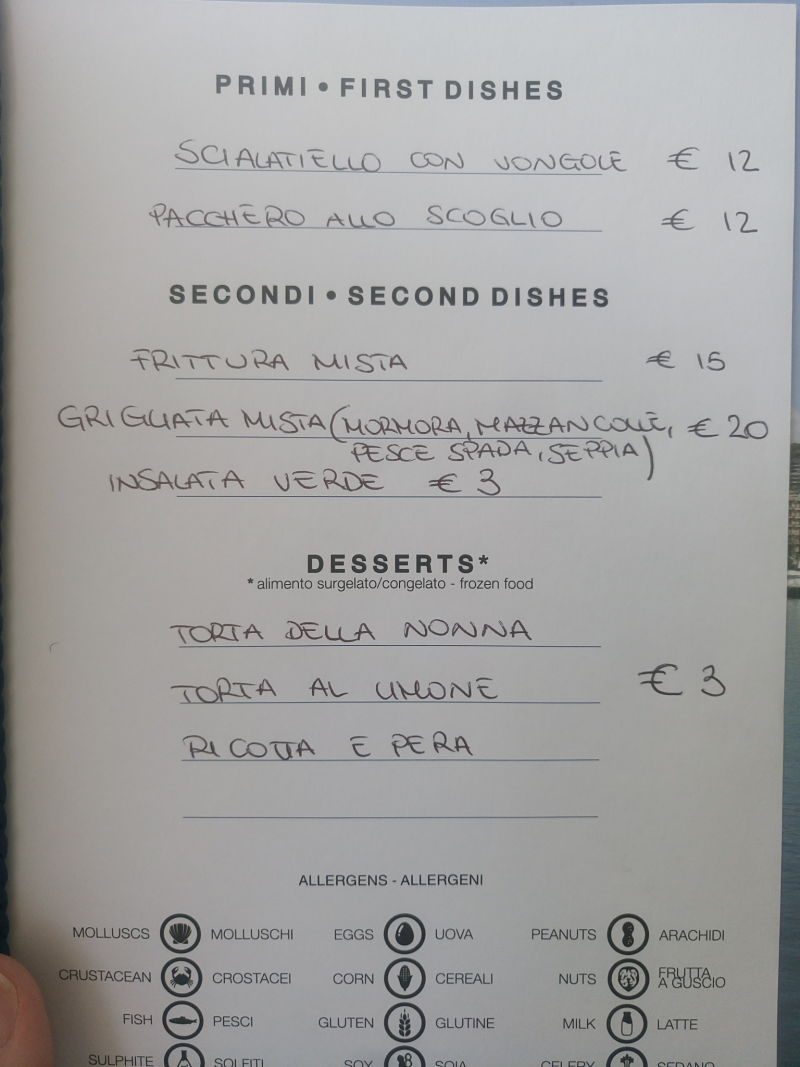 PRIMI • FIRST DISHES
SCIALATIELLO CON VONGOLE € 12
PACCHERO ALLO SCOGLIO € 12
SECONDI • SECOND DISHES
FRITTURA MISTA € 15
GRIGLIATA MISTA (MORMORA, MAZZANCOLLE, € 20
PESCE SPADA, SEPPIA)
INSALATA VERDE € 3
DESSERTS*
* alimento surgelato/congelato - frozen food
TORTA DELLA NONNA
TORTA AL LIMONE € 3
RICOTTA E PERA
ALLERGENS - ALLERGENI
MOLLUSCS MOLLUSCHI EGGS UOVA PEANUTS ARACHIDI
CRUSTACEAN CROSTACEI CORN CEREALI NUTS FRUTTA
A GUSCIO
FISH PESCI GLUTEN GLUTINE MILK LATTE
SULPHITE SOLFITI SOY SOIA CELERY SEDANO